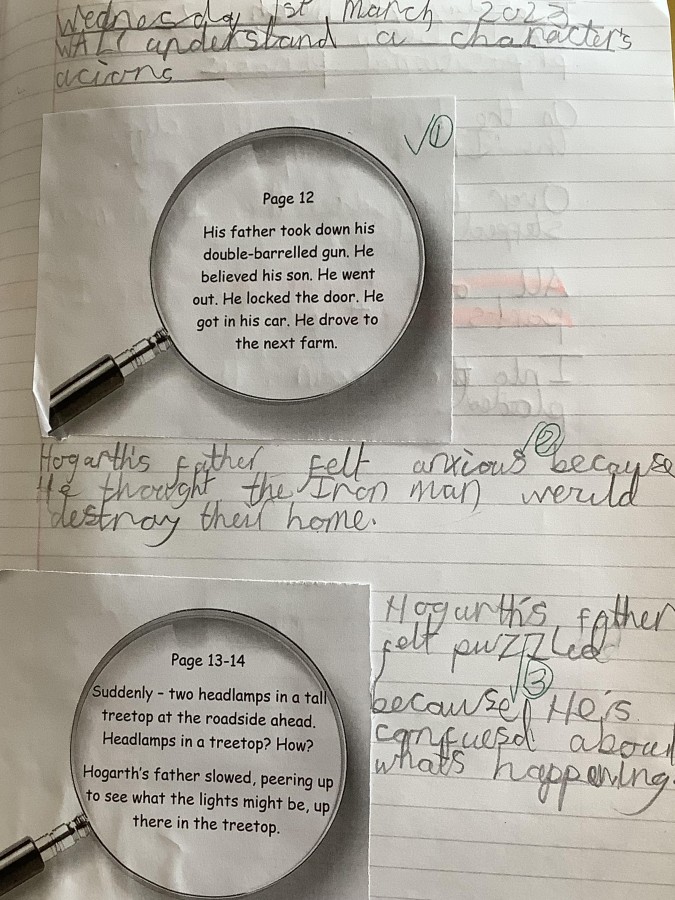 Wednesday 1st March 2023
WALT understand a character's
acions
1
Page 12
His father took down his
double-barrelled gun. He
believed his son. He went
out. He locked the door. He
got in his car. He drove to
the next farm.
2
Hogarth's father felt anxious because
He thought the Iron man werild
destroy their home.
Page 13-14
Suddenly - two headlamps in a tall
treetop at the roadside ahead.
Headlamps in a treetop? How?
Hogarth's father slowed, peering up
to see what the lights might be, up
there in the treetop.
Hogarth's father
felt puzzled
3
because He's
confuesd about
what's happening.